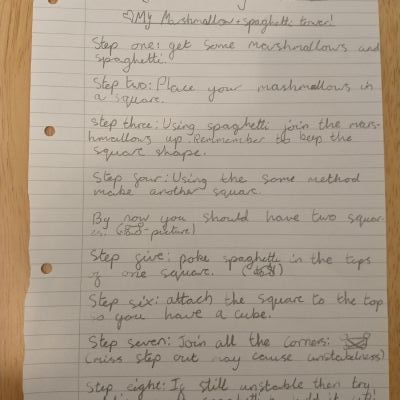 ♡My Marshmallow + spaghetti tower!
Step one: get some marshmallows and
spaghetti.
Step two: Place your mashmallows in
a square.
Step three: Using spaghetti join the mars-
hmallows up. Remmember to keep the
square shape.
Step four: Using the same method
make another square.
By now you should have two squar-
es.
Step five: poke spaghetti in the tops
of one square.
Step six: attach the square to the top
so you have a cube.
Step seven: Join all the corners:
(miss step out may cause unstableness)
Step eight: If still unstable then try